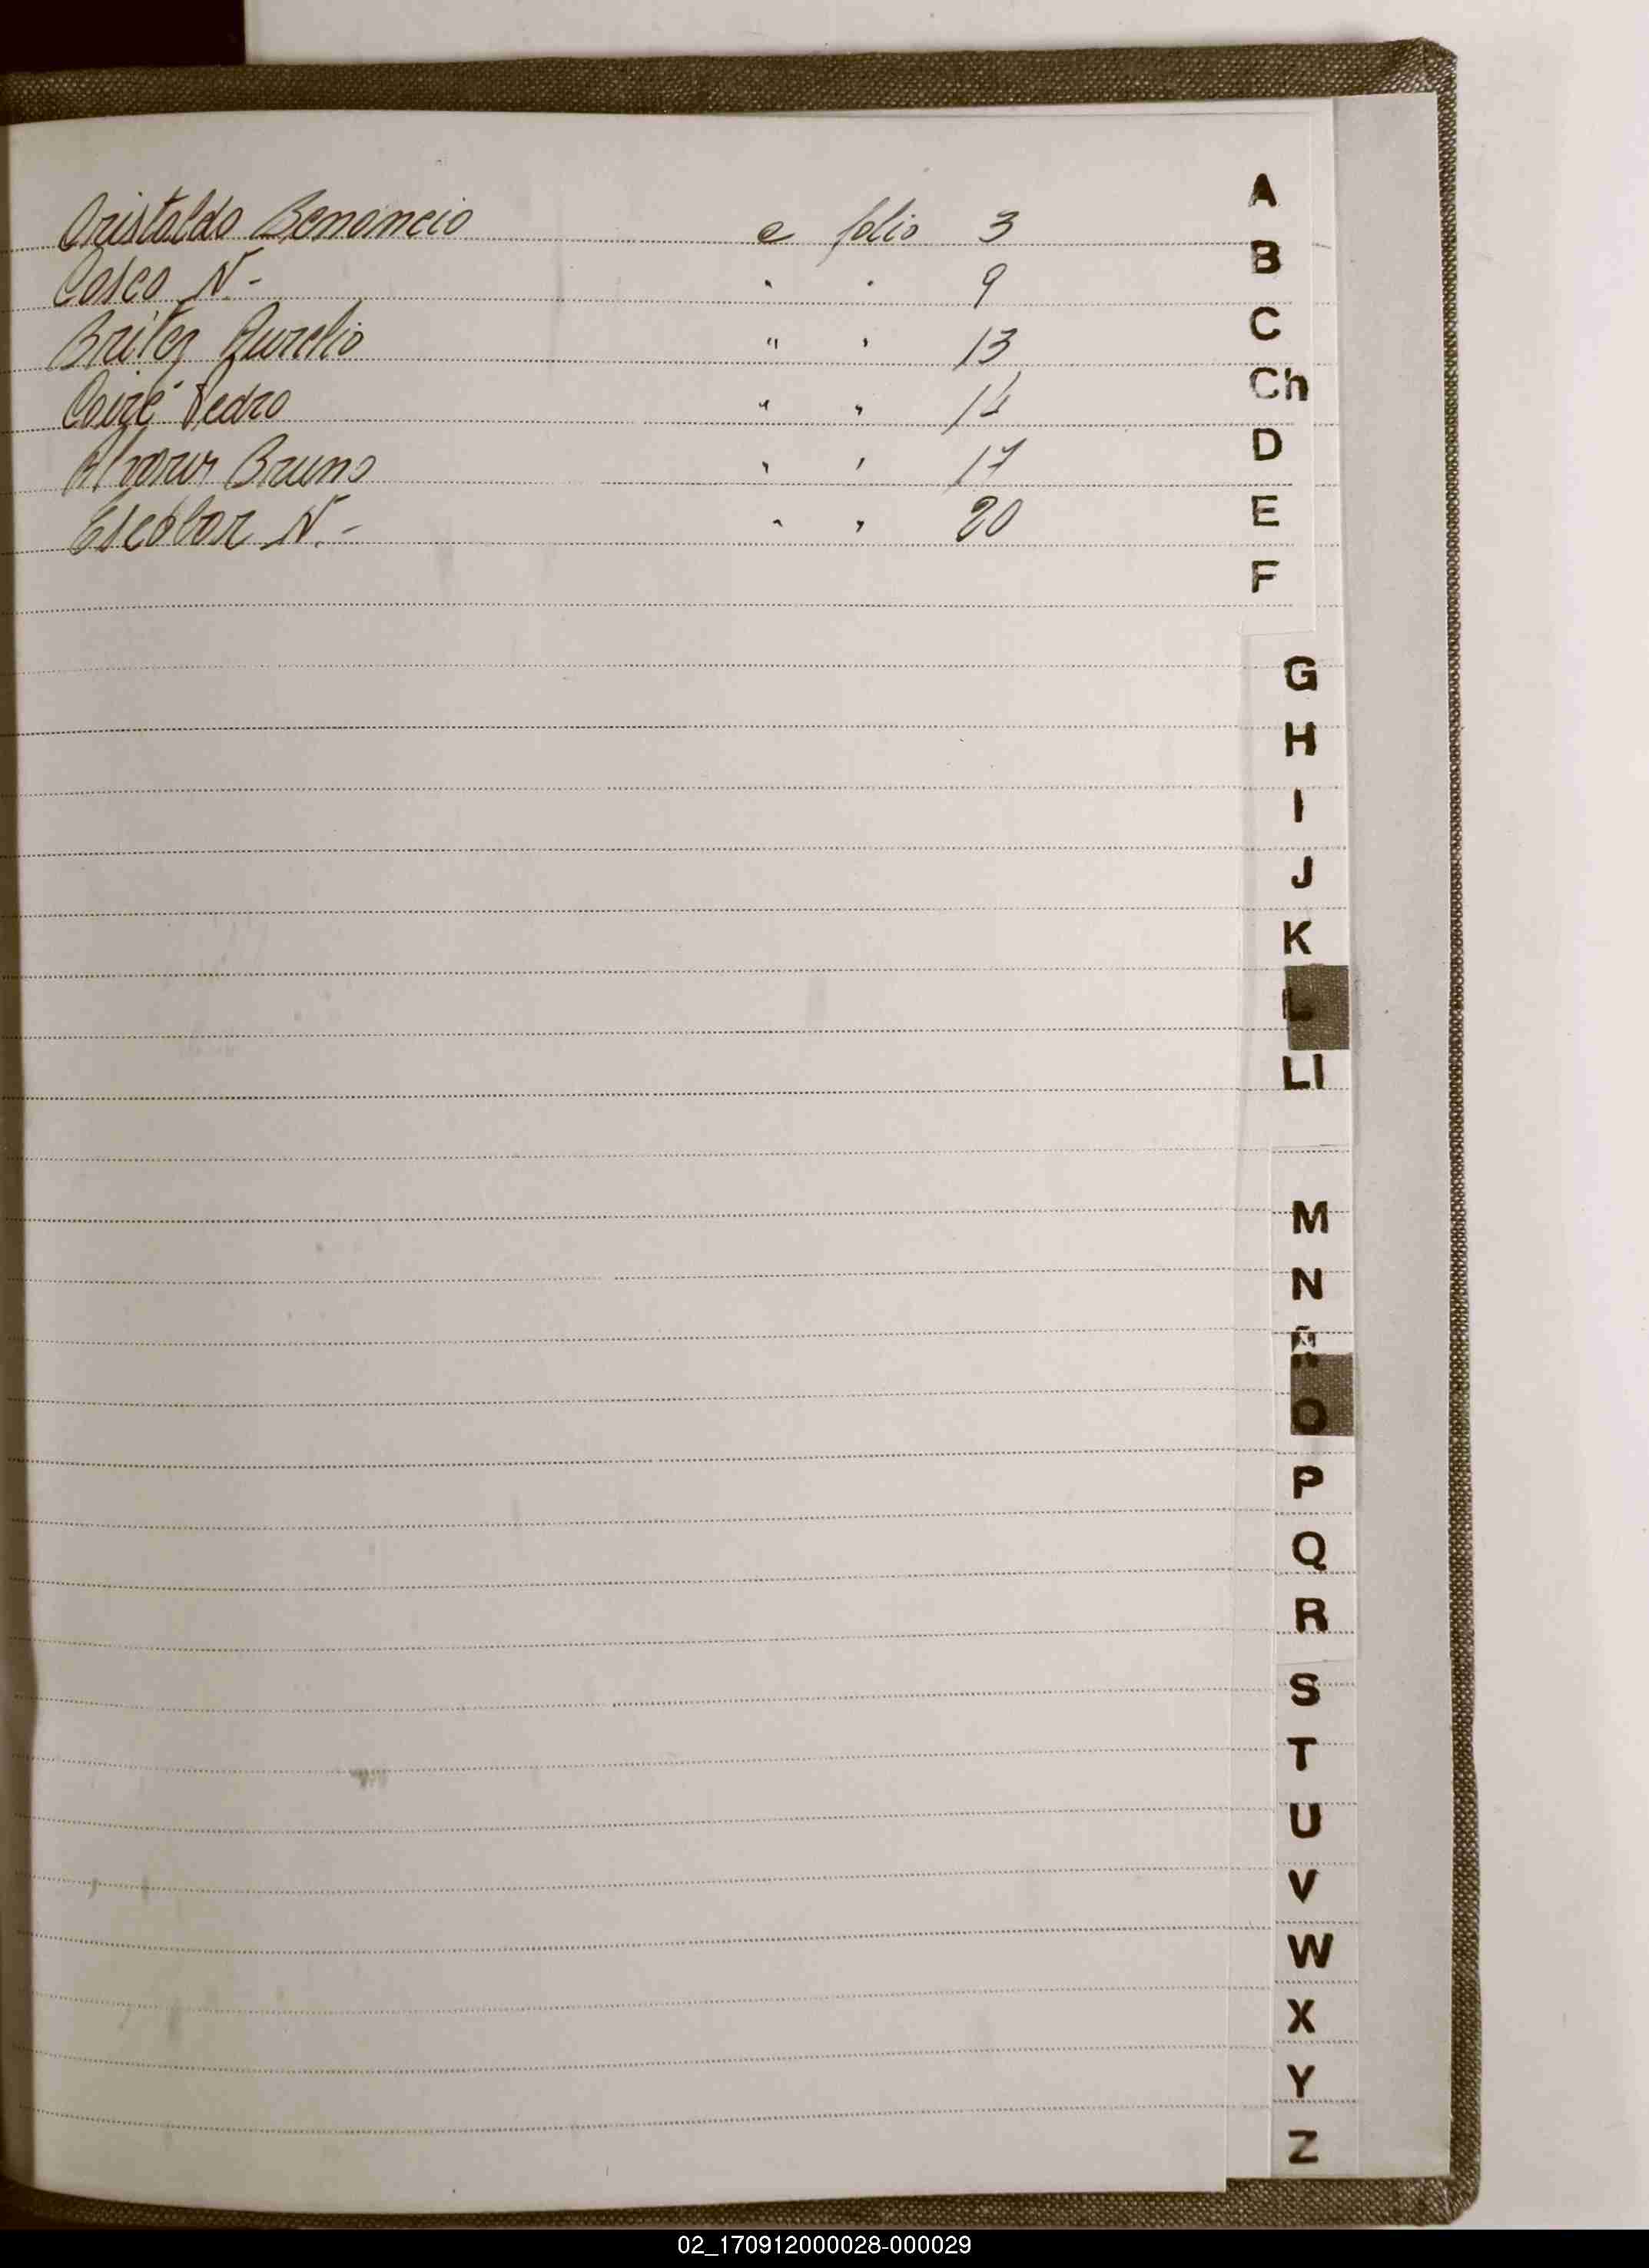 Aristaldo Benancio a folio 3
Cosco N- " " 9
Britez Aurelio " " 13
Coiré Pedro " " 14
Bruno " " 17
Escobar N.- " " 20
A
B
C
Ch
D
E
F
G
H
I
J
K
L
Ll
M
N
Ñ
O
P
Q
R
S
T
U
V
W
X
Y
Z
02_170912000028-000029